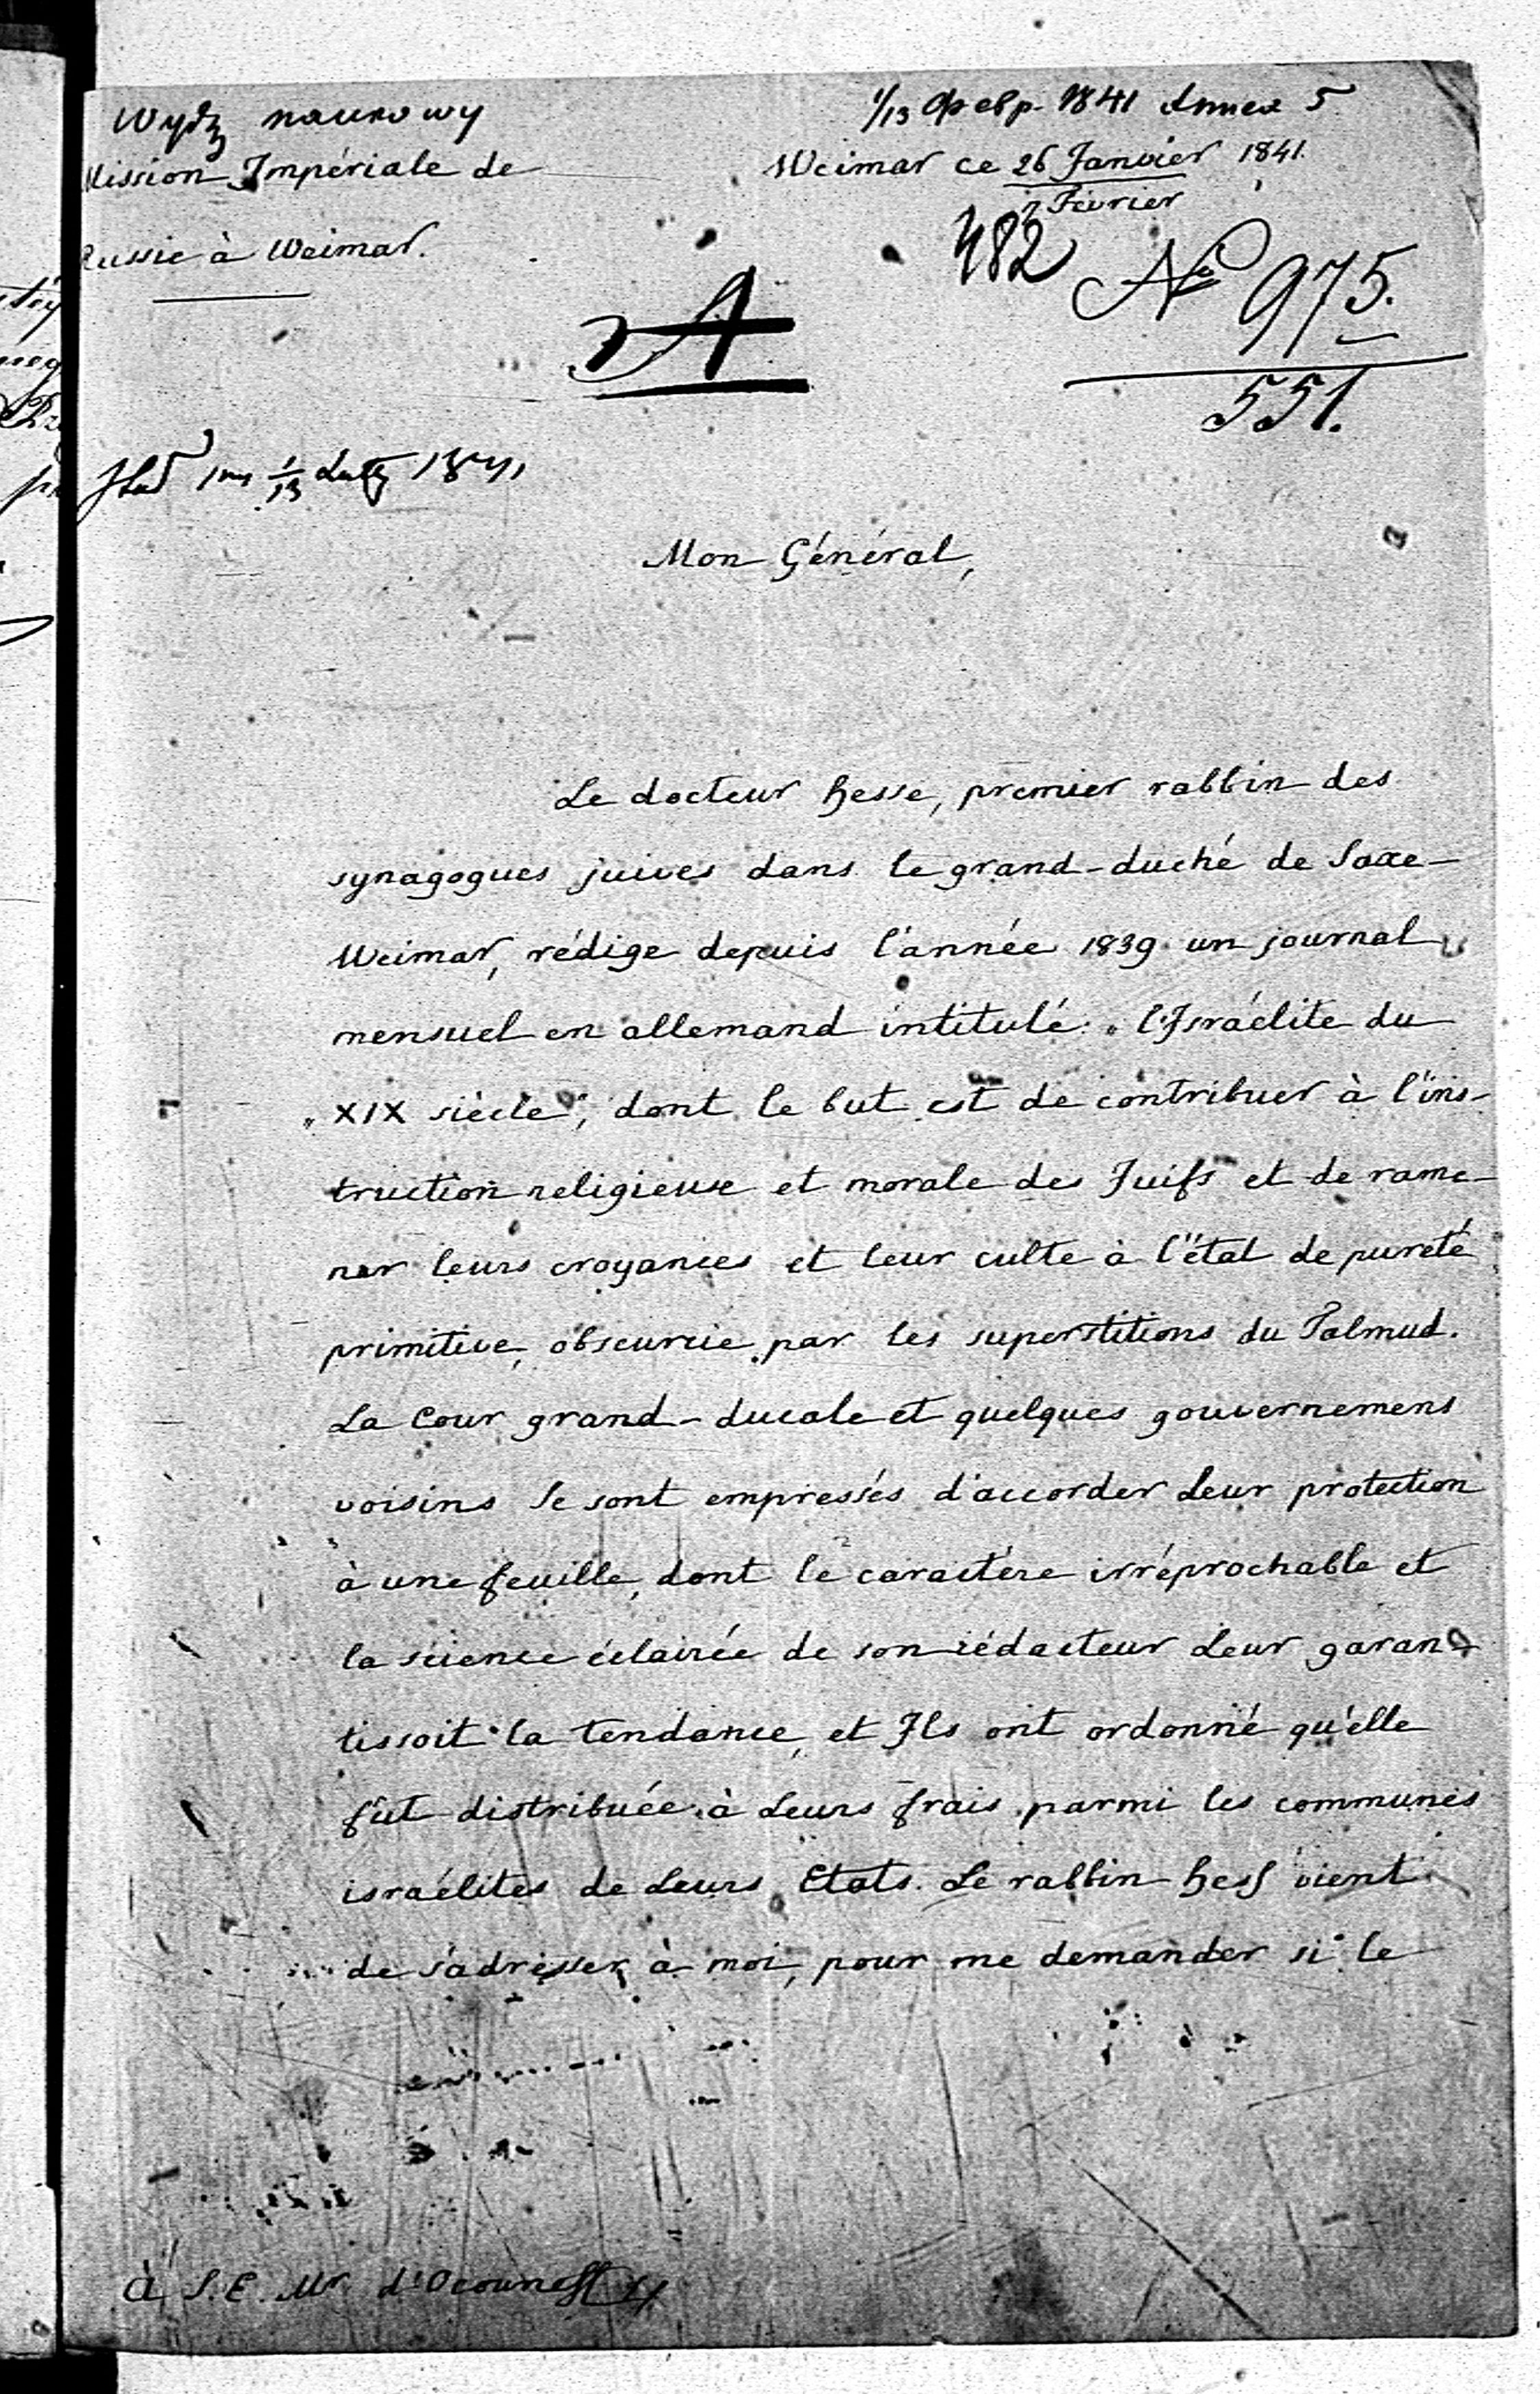 Wydz naukowy
1/13 Февр. 1841 Annex 5
Mission Impériale de
Russie à Weimar.
Weimar ce 26 Janvier 1841.
7 Février
482
No 975.
551.
A
1/13 1841
Mon Général,
Le docteur Hesse, premier rabbin des
synagogues juives dans le grand-duché de Saxe-
Weimar, rédige depuis l'année 1839 un journal
mensuel en allemand intitulé: „l'Israélite du
„XIX siècle", dont le but est de contribuer à l'ins-
truction religieuse et morale des Juifs et de rame-
ner leurs croyances et leur culte à l'état de pureté
primitive, obscurcie par les superstitions du Talmud.
La Cour grand-ducale et quelques gouvernemens
voisins se sont empressés d'accorder Leur protection
à une feuille, dont le caractère irréprochable et
la science éclairée de son rédacteur Leur garan-
tissoit la tendance, et Ils ont ordonné qu'elle
fût distribuée à Leurs frais parmi les communes
israélites de Leurs Etats. Le rabbin Hess vient
de s'adresser à moi, pour me demander si le
à S. E. Mr d'Ocouneff